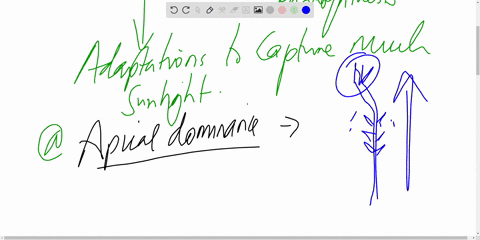 Adaptations to Capture much
Sunlight.
@ Apical dominance →